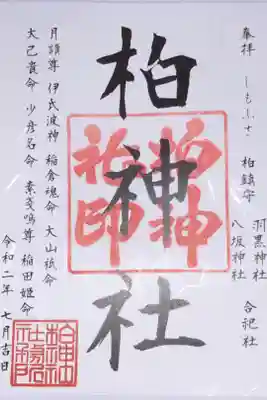 奉拝 しもふさ 柏鎮守
羽黒神社
八坂神社
合祀社
柏神社
柏神
社印
月讀尊 伊氐波神 稲倉魂命 大山祇命
大己貴命 少彦名命 素戔嗚尊 稲田姫命
令和二年 七月吉日